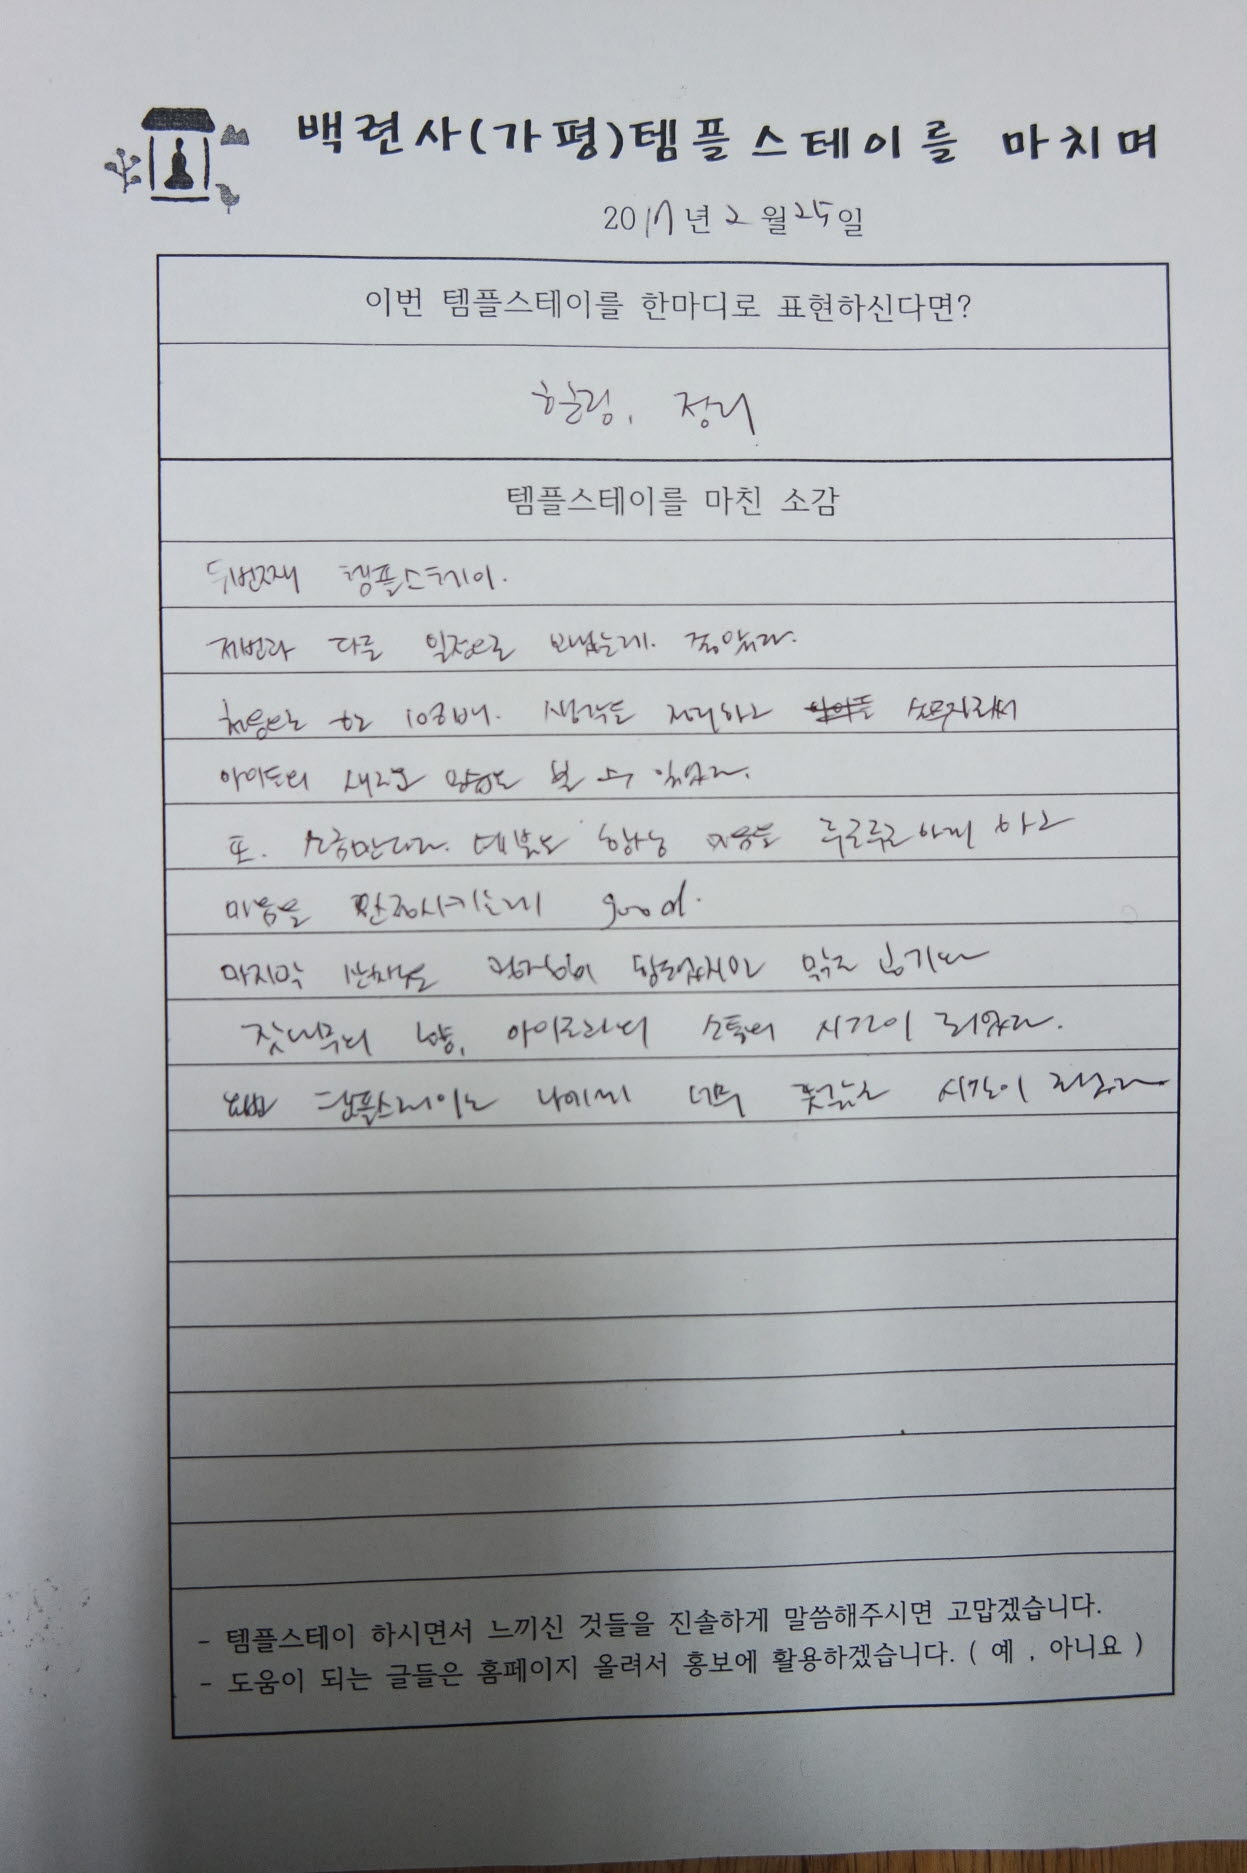 백련사(가평)템플스테이를 마치며
2017년 2월 25일
이번 템플스테이를 한마디로 표현하신다면?
힐링, 정리
템플스테이를 마친 소감
두번째 템플스테이.
저번과 다른 일정으로 보냈는데. 좋았다.
처음으로 한 108배. 생각을 정리하고
아이들의 새로운 모습도 볼 수 있었다.
또. 하고
마음을 안정시키는데 good.
마지막 산책은 맑은 공기와
잣나무의 향, 아이들과의 소통의 시간이 되었다.
이번 템플스테이는 나에게 너무 뜻깊은 시간이 되었다
- 템플스테이 하시면서 느끼신 것들을 진솔하게 말씀해주시면 고맙겠습니다.
- 도움이 되는 글들은 홈페이지 올려서 홍보에 활용하겠습니다. ( 예 , 아니요 )